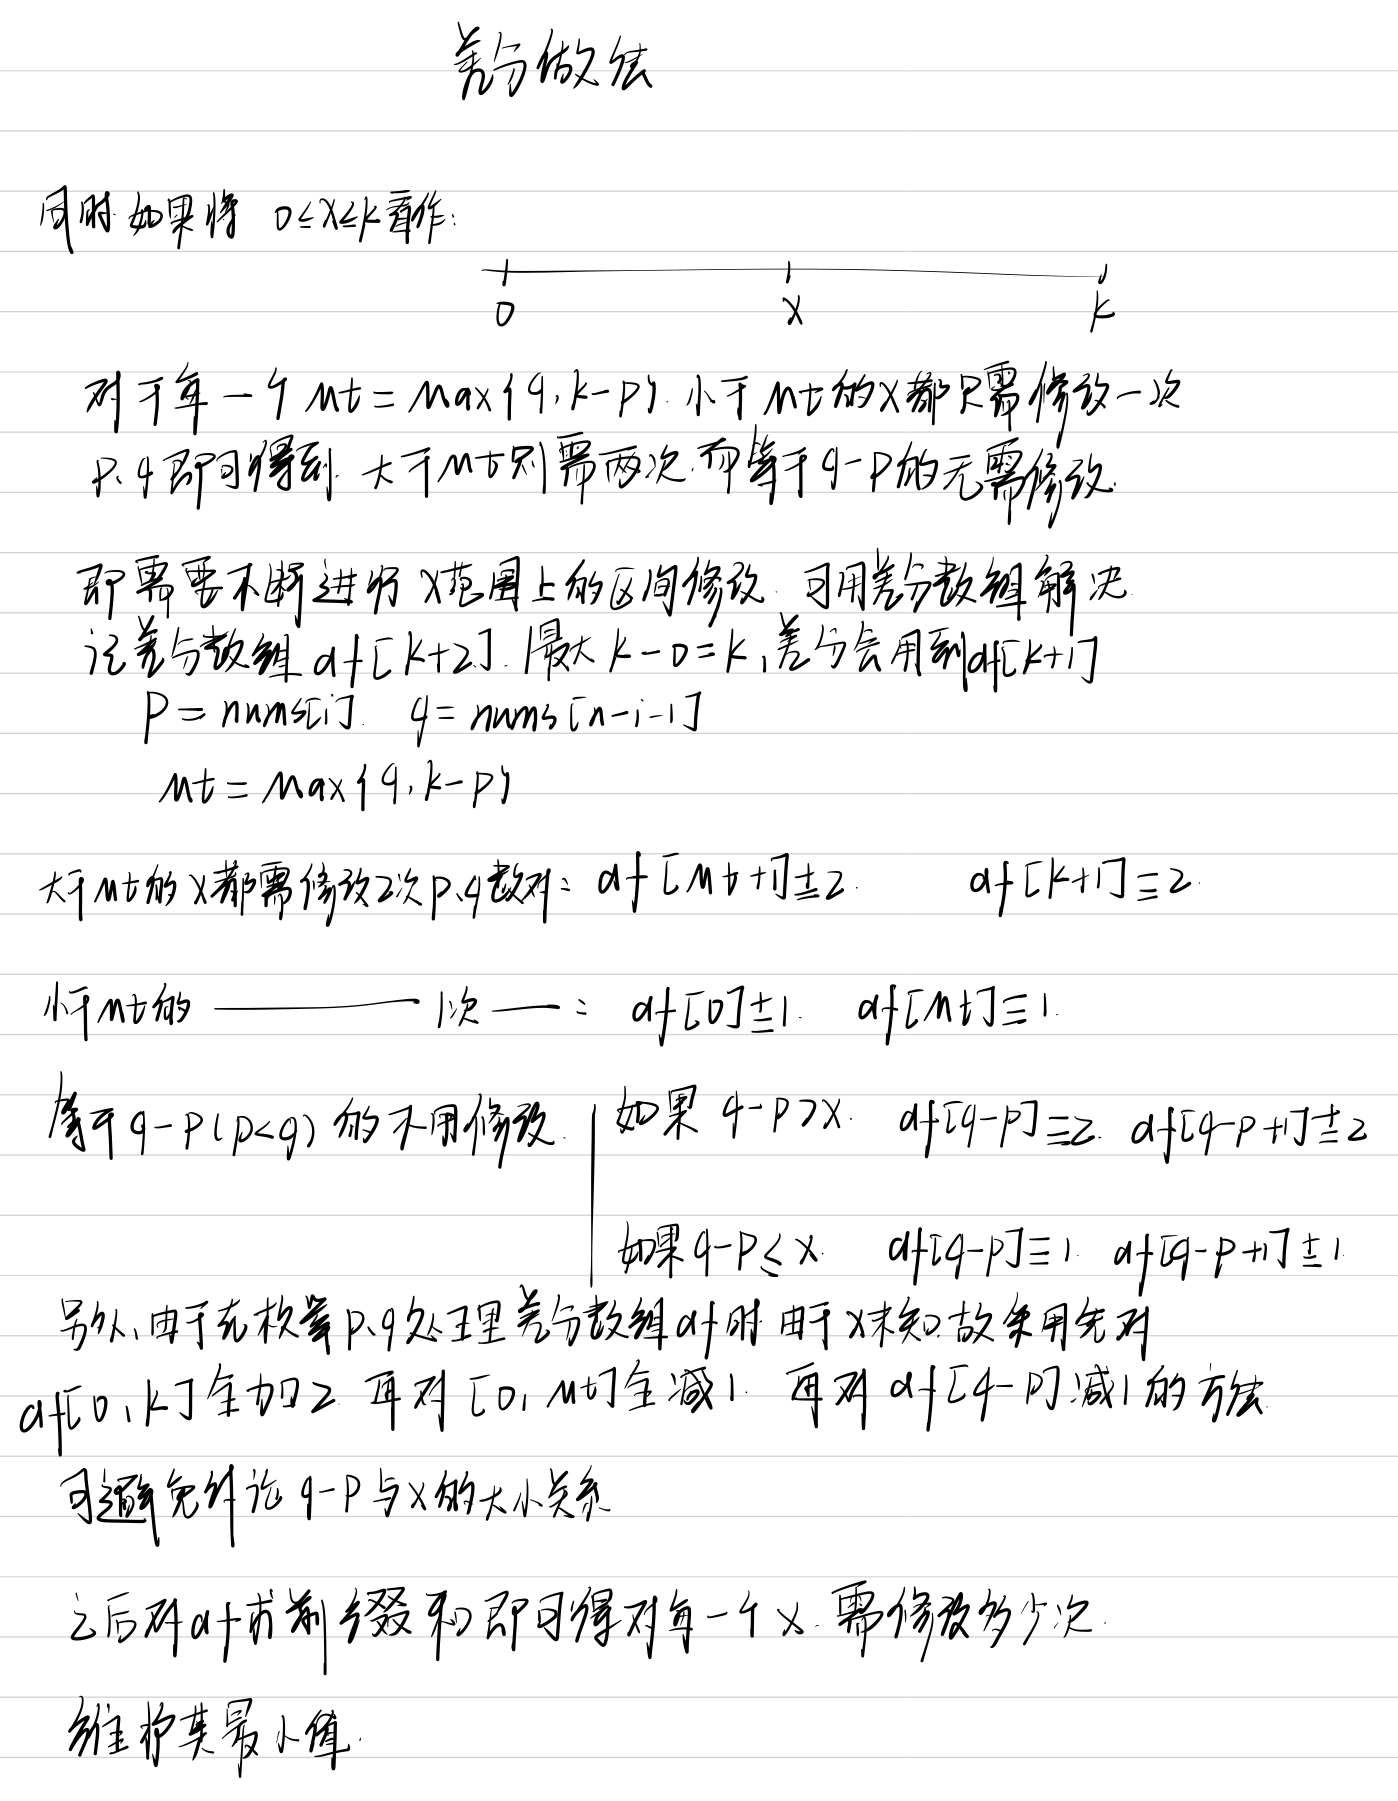 差分做法
同时如果将 0≤x≤k看作:
0 x k
对于每一个 mt = max{q, k-p}. 小于mt的x都只需修改一次
p、q即可得到. 大于mt则需两次. 而等于q-p的无需修改.
即需要不断进行x范围上的区间修改. 可用差分数组解决
记差分数组 df[k+2]. 最大 k-0=k, 差分会用到df[k+1]
p = nums[i]. q = nums[n-i-1]
mt = max{q, k-p}
大于mt的x都需修改2次p、q数对: df[mt+1]+=2. df[k+1]-=2.
小于mt的 —— 1次 — : df[0]+=1. df[mt]-=1.
等于q-p(p<q) 的不用修改. 如果 q-p>x. df[q-p]-=2. df[q-p+1]+=2
如果q-p≤x. df[q-p]-=1. df[q-p+1]+=1.
另外、由于在枚举p、q处理差分数组df时 由于x未知. 故采用先对
df[0,k]全加2 再对[0,mt]全减1. 再对 df[q-p]减1的方法.
可避免讨论q-p与x的大小关系
之后对df求前缀和即可得对每一个x. 需修改多少次.
维护其最小值.